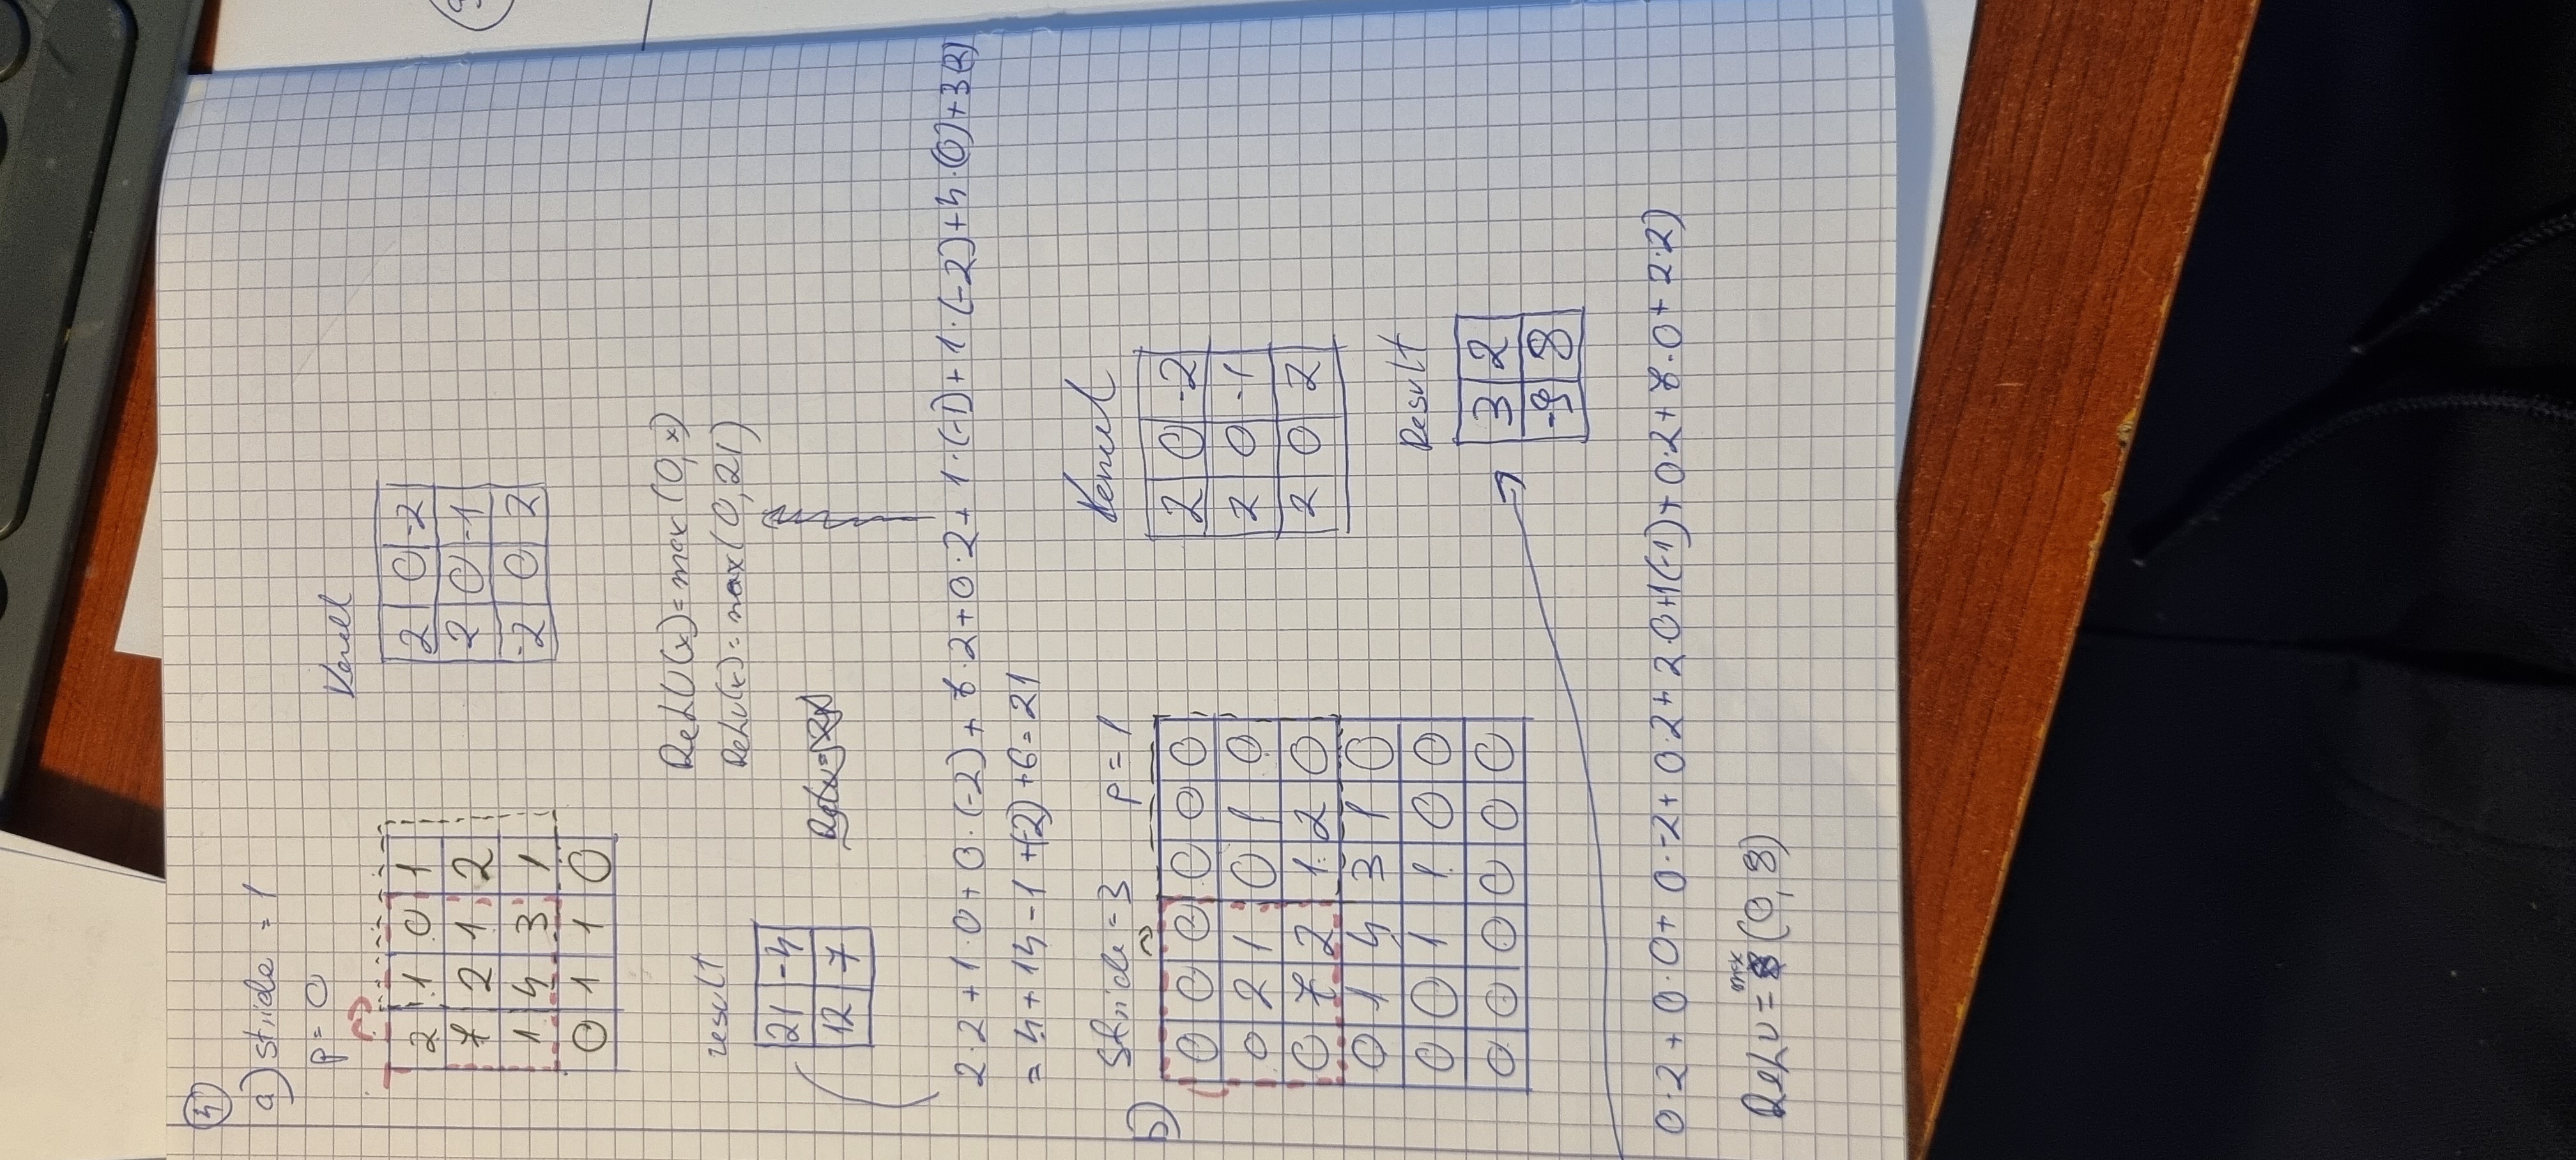 4
a) stride = 1
p = 0
Kernel
2 1 0 1
7 2 1 2
1 4 3 1
0 1 1 0
2 0 -2
2 0 -1
-2 0 2
ReLU(x) = max(0, x)
ReLu(x) = max(0, 21)
result
21 -4
12 7
2·2 + 1·0 + 0·(-2) + 7·2 + 0·2 + 1·(-1) + 1·(-2) + 4·(0) + 3(2)
= 4 + 14 - 1 + (-2) + 6 = 21
b) Stride = 3 p = 1
Kernel
0 0 0 0 0 0
0 2 1 0 1 0
0 7 2 1 2 0
0 1 4 3 1 0
0 0 1 1 0 0
0 0 0 0 0 0
2 0 -2
2 0 -1
2 0 2
Result
3 2
-9 8
0·2 + 0·0 + 0·-2 + 0·2 + 2·0 + 1(-1) + 0·2 + 7·0 + 2·2)
ReLU = max (0, 8)